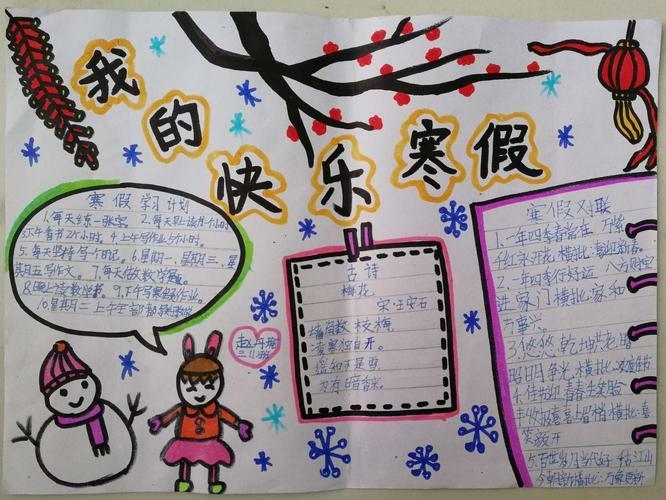 我的快乐寒假
寒假学习计划
1.每天练一张字。2.每天早上读书1个小时
3.下午看书2个小时。4.上午写作业1个小时。
5.每天坚持写一个日记。6.星期一、星期三、星
期五写作文。7.每天做数学题。
8.晚上读数学书。9.下午写寒假作业。
10.星期二上午
古诗
梅花
宋·王安石
墙角数枝梅，
凌寒独自开。
遥知不是雪，
为有暗香来。
三.11班
寒假对联
1.一年四季春常在 万紫
千红永开花 横批:喜迎新春
2.一年四季行好运 八方财宝
进家门 横批:家和
万事兴。
3.悠悠乾坤共老
昭昭日月争光 横批:欢度佳节
4.佳节迎春春生笑脸
丰收报喜喜上眉梢 横批:喜
笑颜开
5.百世岁月当代好 千古江山
今朝新 横批:万象更新